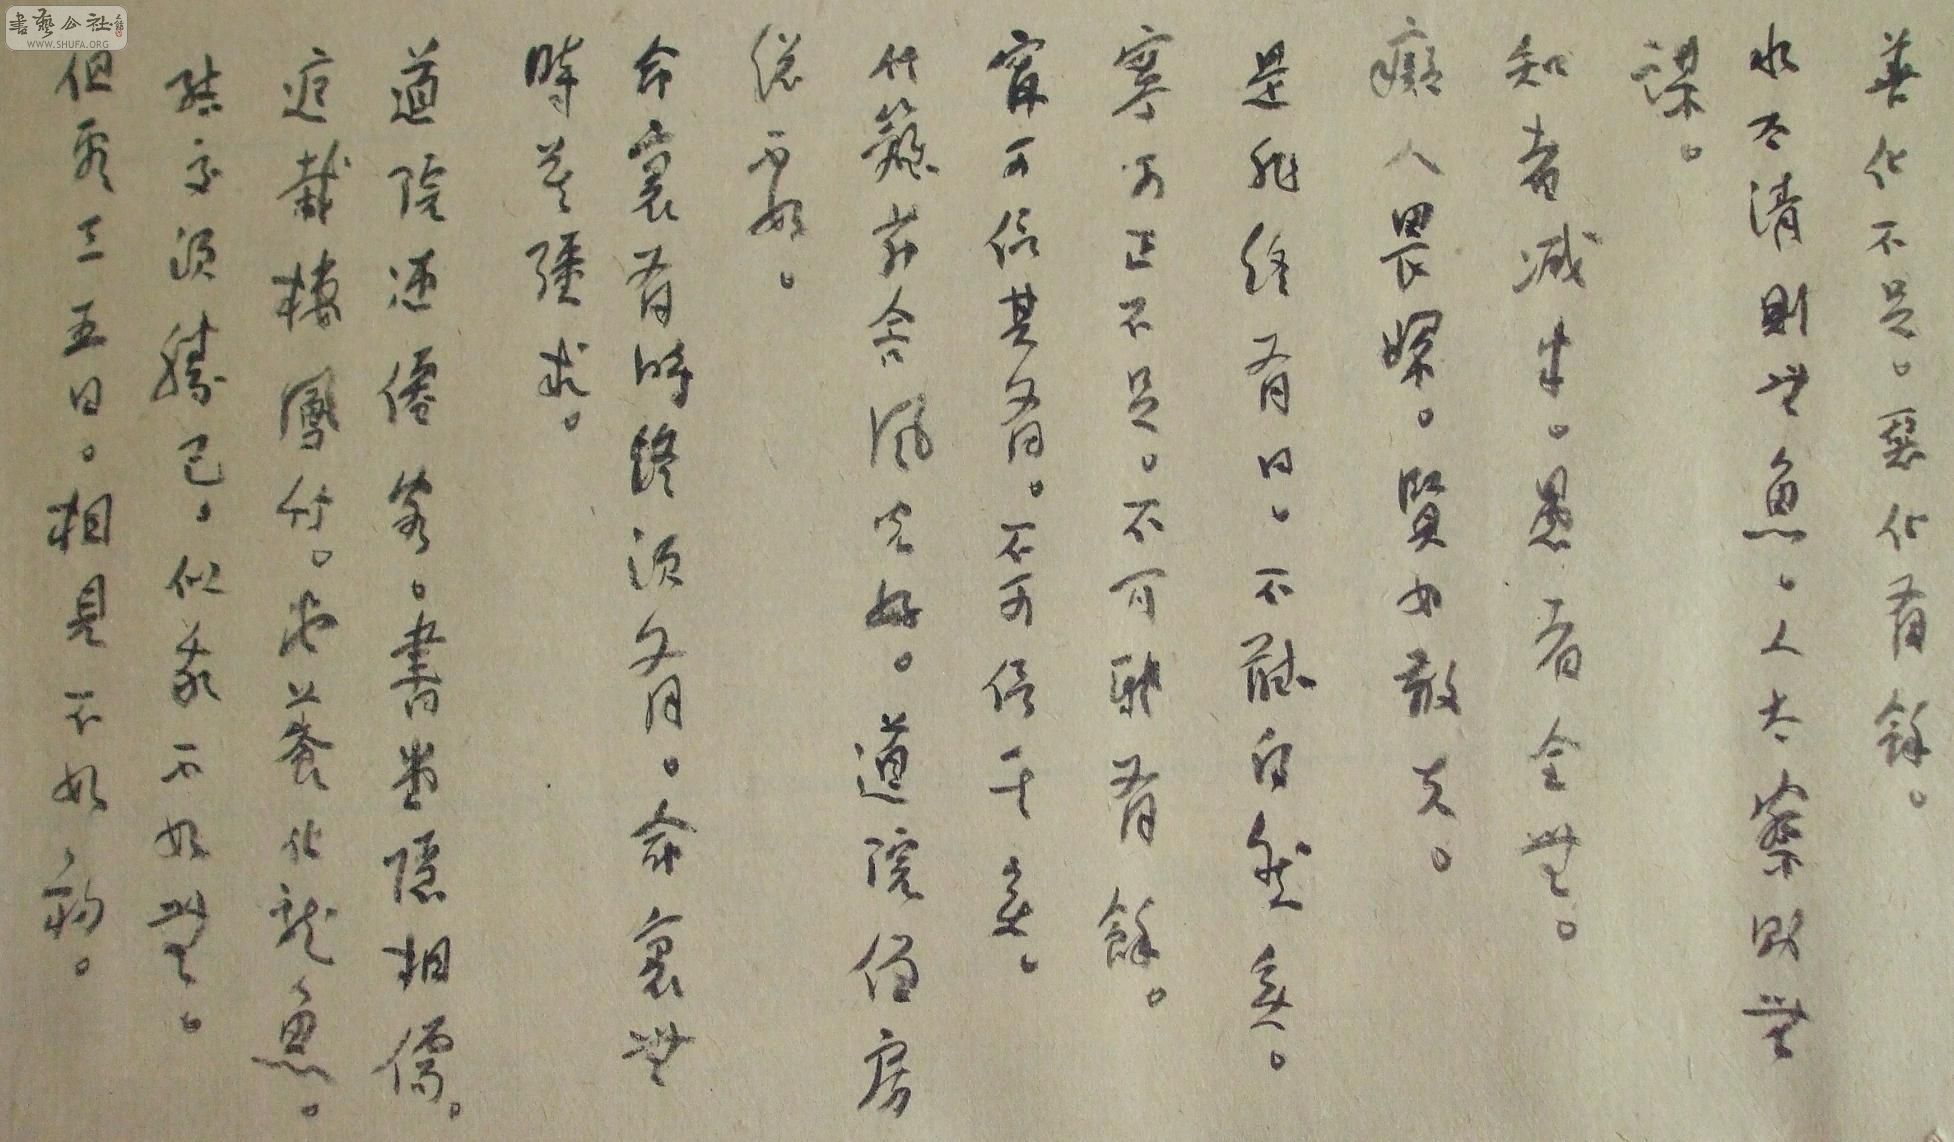 書藝公社
WWW.SHUFA.ORG
善化不足。惡化有餘。
水太清則無魚。人太察則無
謀。
知者減半。愚者全無。
癡人畏婦。賢女敬夫。
是非終有日。不聽自然無。
寧可正不足。不可邪有餘。
寧可信其有。不可信其無。
竹籬茅舍風光好。道院僧房
總不如。
命裏有時終須有。命裏無
時莫強求。
道院迎僊客。書堂隱相儒。
庭栽棲鳳竹。池養化龍魚。
結交須勝己。似我不如無。
但看三五日。相見不如初。